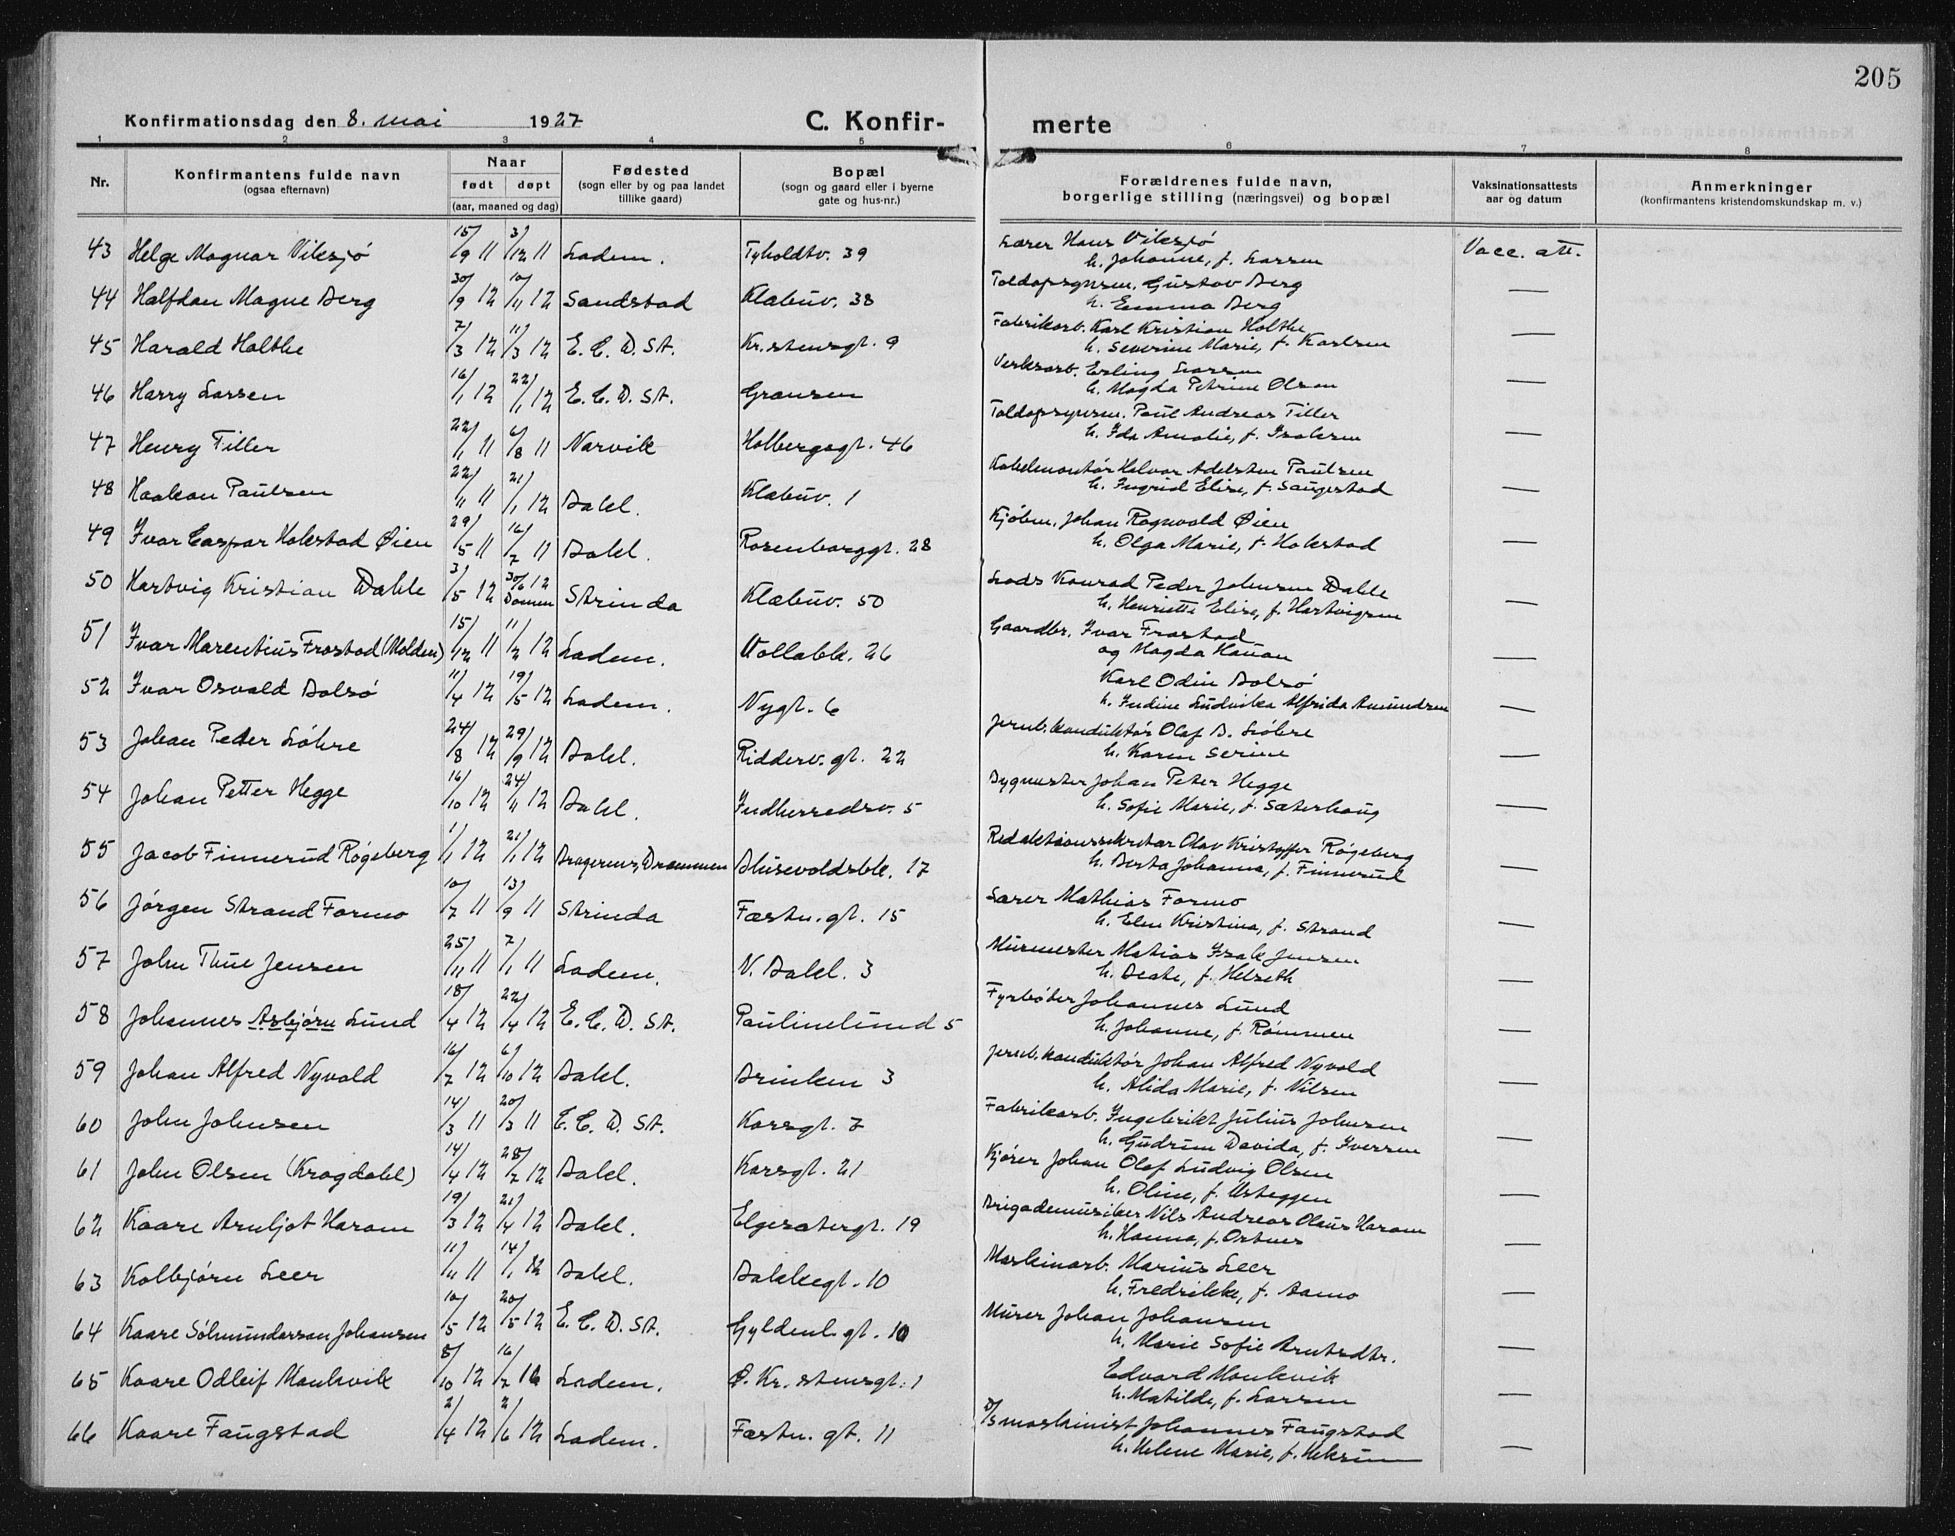 205
Konfirmationsdag den 8. mai 1927 C. Konfir- merte
1 2 3 4 5 6 7 8
Nr. Konfirmantens fulde navn (ogsaa efternavn) Naar født døpt (aar, maaned og dag) Fødested (sogn eller by og paa landet tillike gaard) Bopæl (sogn og gaard eller i byerne gate og hus-nr.) Forældrenes fulde navn, borgerlige stilling (næringsvei) og bopæl Vaksinationsattests aar og datum Anmerkninger (konfirmantens kristendomskundskap m. v.)
43 Helge Magnar Viksjø 15/9 11 3/12 11 Ladem. Tyholdtv. 39 Lærer Hans Viksjø Vacc. att.
h. Johanne, f. Larsen
44 Halfdan Magne Berg 30/9 12 10/11 12 Sandstad Klæbuv. 38 Toldopsynsm. Gustav Berg —
h. Emma Berg
45 Harald Holthe 7/3 12 11/3 12 E. C. D. St. Kr.stensgt. 9 Fabrikarb. Karl Kristian Holthe —
h. Severine Marie, f. Karlsen
46 Harry Larsen 16/1 12 22/1 12 E. C. D. St. Gransen Verksarb. Erling Larsen —
h. Magda Petrine Olsen
47 Henry Tiller 22/1 11 6/8 11 Narvik Holbergsgt. 46 Toldopsynsm. Paul Andreas Tiller —
h. Ida Amalie, f. Isaksen
48 Haakon Paulsen 22/11 11 21/1 12 Bakl. Klæbuv. 1 Kabelmontør Halvor Adelsten Paulsen —
h. Ingrid Elise, f. Saugestad
49 Ivar Caspar Hokstad Øien 29/5 11 16/7 11 Bakl. Rosenborggt. 28 Kjøbm. Johan Ragnvald Øien —
h. Olga Marie, f. Hokstad
50 Hartvig Kristian Dahle 3/5 12 30/6 12 Domen Strinda Klæbuv. 50 Lods Konrad Peder Johnsen Dahle —
h. Henriette Elise, f. Hartvigsen
51 Ivar Marentius Frostad (Molden) 15/12 11 11/2 12 Ladem. Vollabk. 26 Gaardbr. Ivar Frostad —
og Magda Hauan
52 Ivar Osvald Bolsø 11/4 12 19/5 12 Ladem. Nygt. 6 Karl Odin Bolsø —
h. Indine Ludvika Alfrida Amundsen
53 Johan Peder Løhre 24/8 12 29/9 12 Bakl. Ridderv. gt. 22 Jernb. konduktør Olaf B. Løhre —
h. Karen Serine
54 Johan Petter Hegge 16/10 12 24/11 12 Bakl. Indherredsv. 5 Bygmester Johan Peter Hegge —
h. Sofie Marie, f. Sæterhaug
55 Jacob Finnerud Røgeberg 1/1 12 21/1 12 Bragernes, Drammen Bhusvoldsbk. 17 Redaktionssekretær Olav Kristoffer Røgeberg —
h. Berta Johanna, f. Finnerud
56 Jørgen Strand Formo 10/7 11 13/9 11 Strinda Fæstn. gt. 15 Lærer Mathias Formo —
h. Elen Kristina, f. Strand
57 John Thue Jensen 25/11 11 7/1 11 Ladem. N. Bakl. 3 Murmester Matias Isak Jensen —
h. Beate, f. Helseth
58 Johannes Asbjørn Lund 18/4 12 22/4 12 E. C. D. St. Paulinelund 5 Fyrbøter Johannes Lund —
h. Johanne, f. Rømmen
59 Johan Alfred Nyvold 16/7 12 6/10 12 Bakl. Brinken 3 Jernb. konduktør Johan Alfred Nyvold —
h. Alida Marie, f. Nilsen
60 John Johnsen 14/3 11 20/3 11 E. C. D. St. Korsgt. 7 Fabrikarb. Ingebrikt Julius Johnsen —
h. Gudrun Davida, f. Iversen
61 John Olsen (Krogdahl) 14/4 12 28/7 12 Bakl. Korsgt. 21 Kjører Johan Olaf Ludvig Olsen —
h. Oline, f. Usteggen
62 Kaare Arnljot Haram 19/3 12 21/4 12 Bakl. Elgesætergt. 19 Brigademusiker Nils Andreas Olaus Haram —
h. Hanna, f. Ostnes
63 Kolbjørn Leer 11/11 11 14/1 12 Bakl. Bakkegt. 10 Maskinarb. Marius Leer —
h. Fredrikke, f. Aamo
64 Kaare Sølmundersen Johansen 10/5 12 20/5 12 E. C. D. St. Gyldenl. gt. 10 Murer Johan Johansen —
h. Marie Sofie Arntsdtr.
65 Kaare Odleif Maukvik 8/10 12 16/7 16 Ladem. Ø. Kr.stensgt. 1 Edvard Maukvik —
h. Matilde, f. Larsen
66 Kaare Faugstad 2/4 12 2/6 12 Ladem. Fæstn. gt. 11 D/S maskinist Johannes Faugstad —
h. Helene Marie, f.